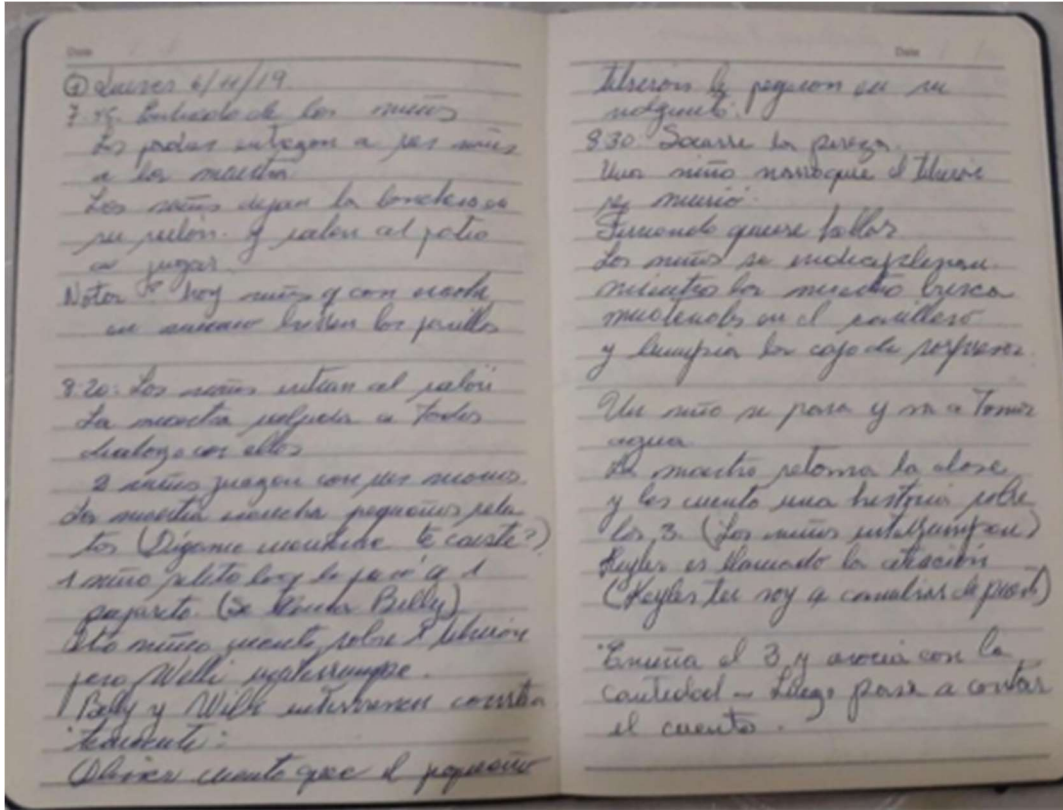 Date
① Lunes 6/11/19
7:45. Entrada de los niños
Los padres entregan a sus niños
a la maestra
Los niños dejan la lonchera en
su sillón. y salen al patio
a jugar.
Nota: hoy niños q con
en los pasillos
8:20: Los niños entran al salón
La maestra saluda a todos
dialoga con ellos
2 niños juegan con sus manos.
La maestra escucha pequeños rela
tos (Dígame te caiste?)
1 niño relata lo q le pasó a 1
pajarito. (Se llama Billy)
Otro niño cuenta sobre 1 tiburón
pero Willi interrumpe.
Billy y Willi intervienen constan
temente:
cuenta que el pequeño
Date
tiburón le pegaron en su
8:30: Sacarse la pereza.
Una niño narra que el tiburón
se murió.
quiere hablar
Los niños se indisciplinan
mientras la maestra busca
materiales en el casillero
y limpia la caja de sorpresa.
Un niño se para y va a tomar
agua
La maestra retoma la clase
y les cuenta una historia sobre
los 3. (Los niños interrumpen)
Keyler es llamado la atención
(Keyler te voy a cambiar de puesto)
Enseña el 3 y asocia con la
cantidad - Luego pasa a contar
el cuento.